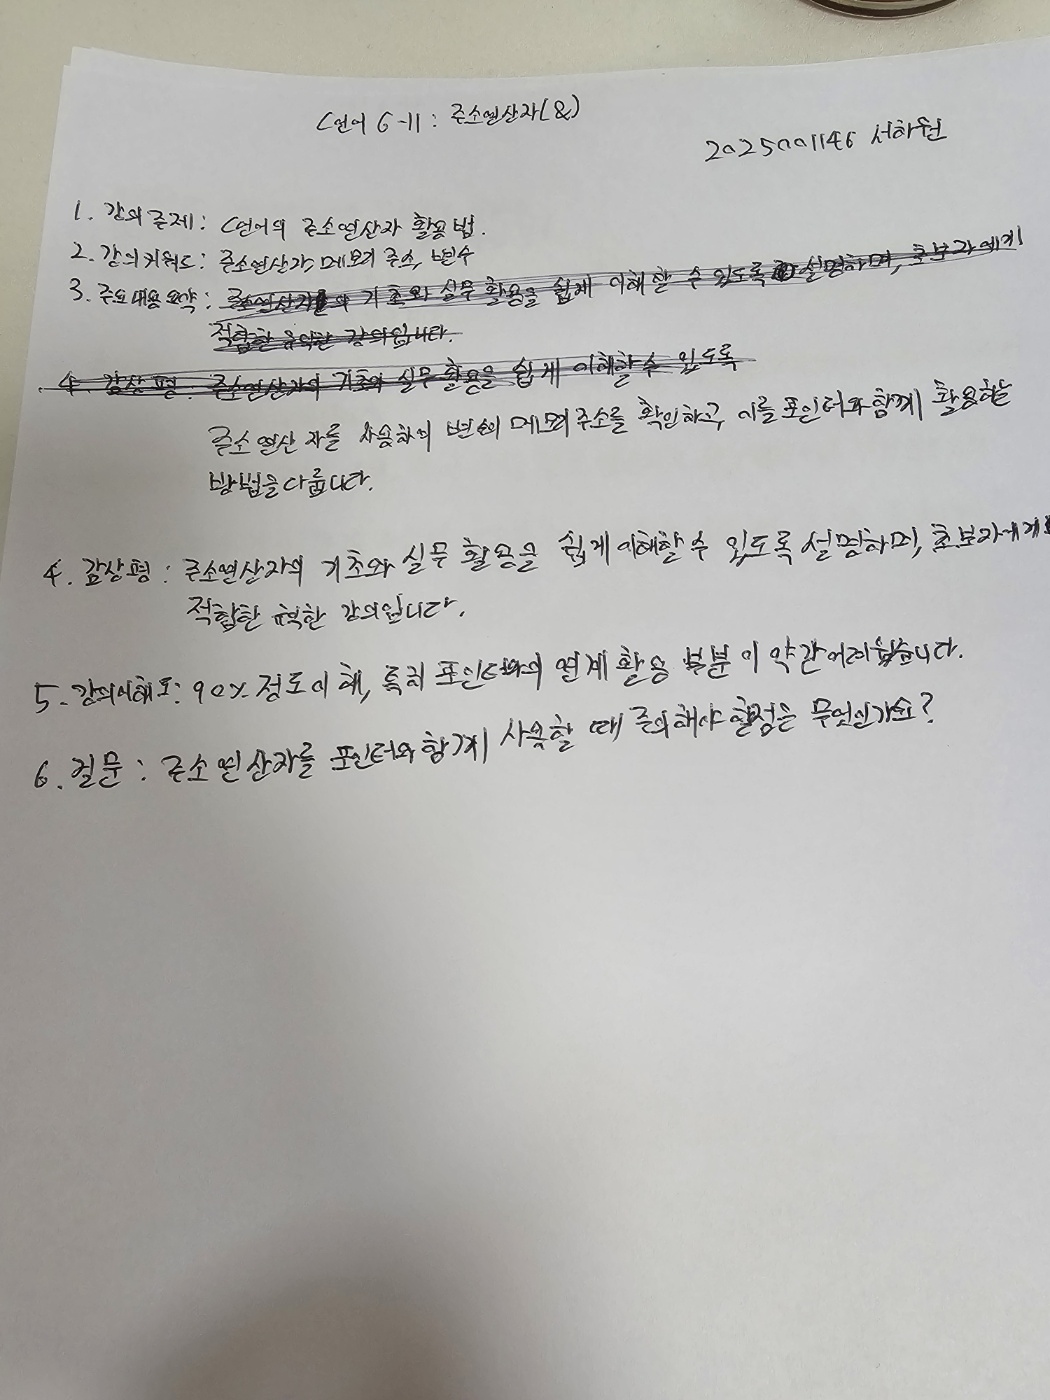 C언어 6-11: 주소연산자(&)
2025001146 서하원
1. 강의주제: C언어의 주소연산자 활용법.
2. 강의키워드: 주소연산자, 메모리 주소, 변수
3. 주요내용요약: 주소연산자의 기초와 실무 활용을 쉽게 이해할 수 있도록 설명하며, 초보자에게
적합한 유익한 강의입니다.
4. 감상평: 주소연산자의 기초와 실무 활용을 쉽게 이해할 수 있도록
주소연산자를 사용하여 변수의 메모리 주소를 확인하고 이를 포인터와 함께 활용하는
방법을 다룹니다.
4. 감상평: 주소연산자의 기초와 실무 활용을 쉽게 이해할 수 있도록 설명하며, 초보자에게
적합한 유익한 강의입니다.
5. 강의이해도: 90% 정도 이해, 특히 포인터와의 연계 활용 부분이 약간 어려웠습니다.
6. 질문: 주소연산자를 포인터와 함께 사용할 때 주의해야 할점은 무엇인가요?